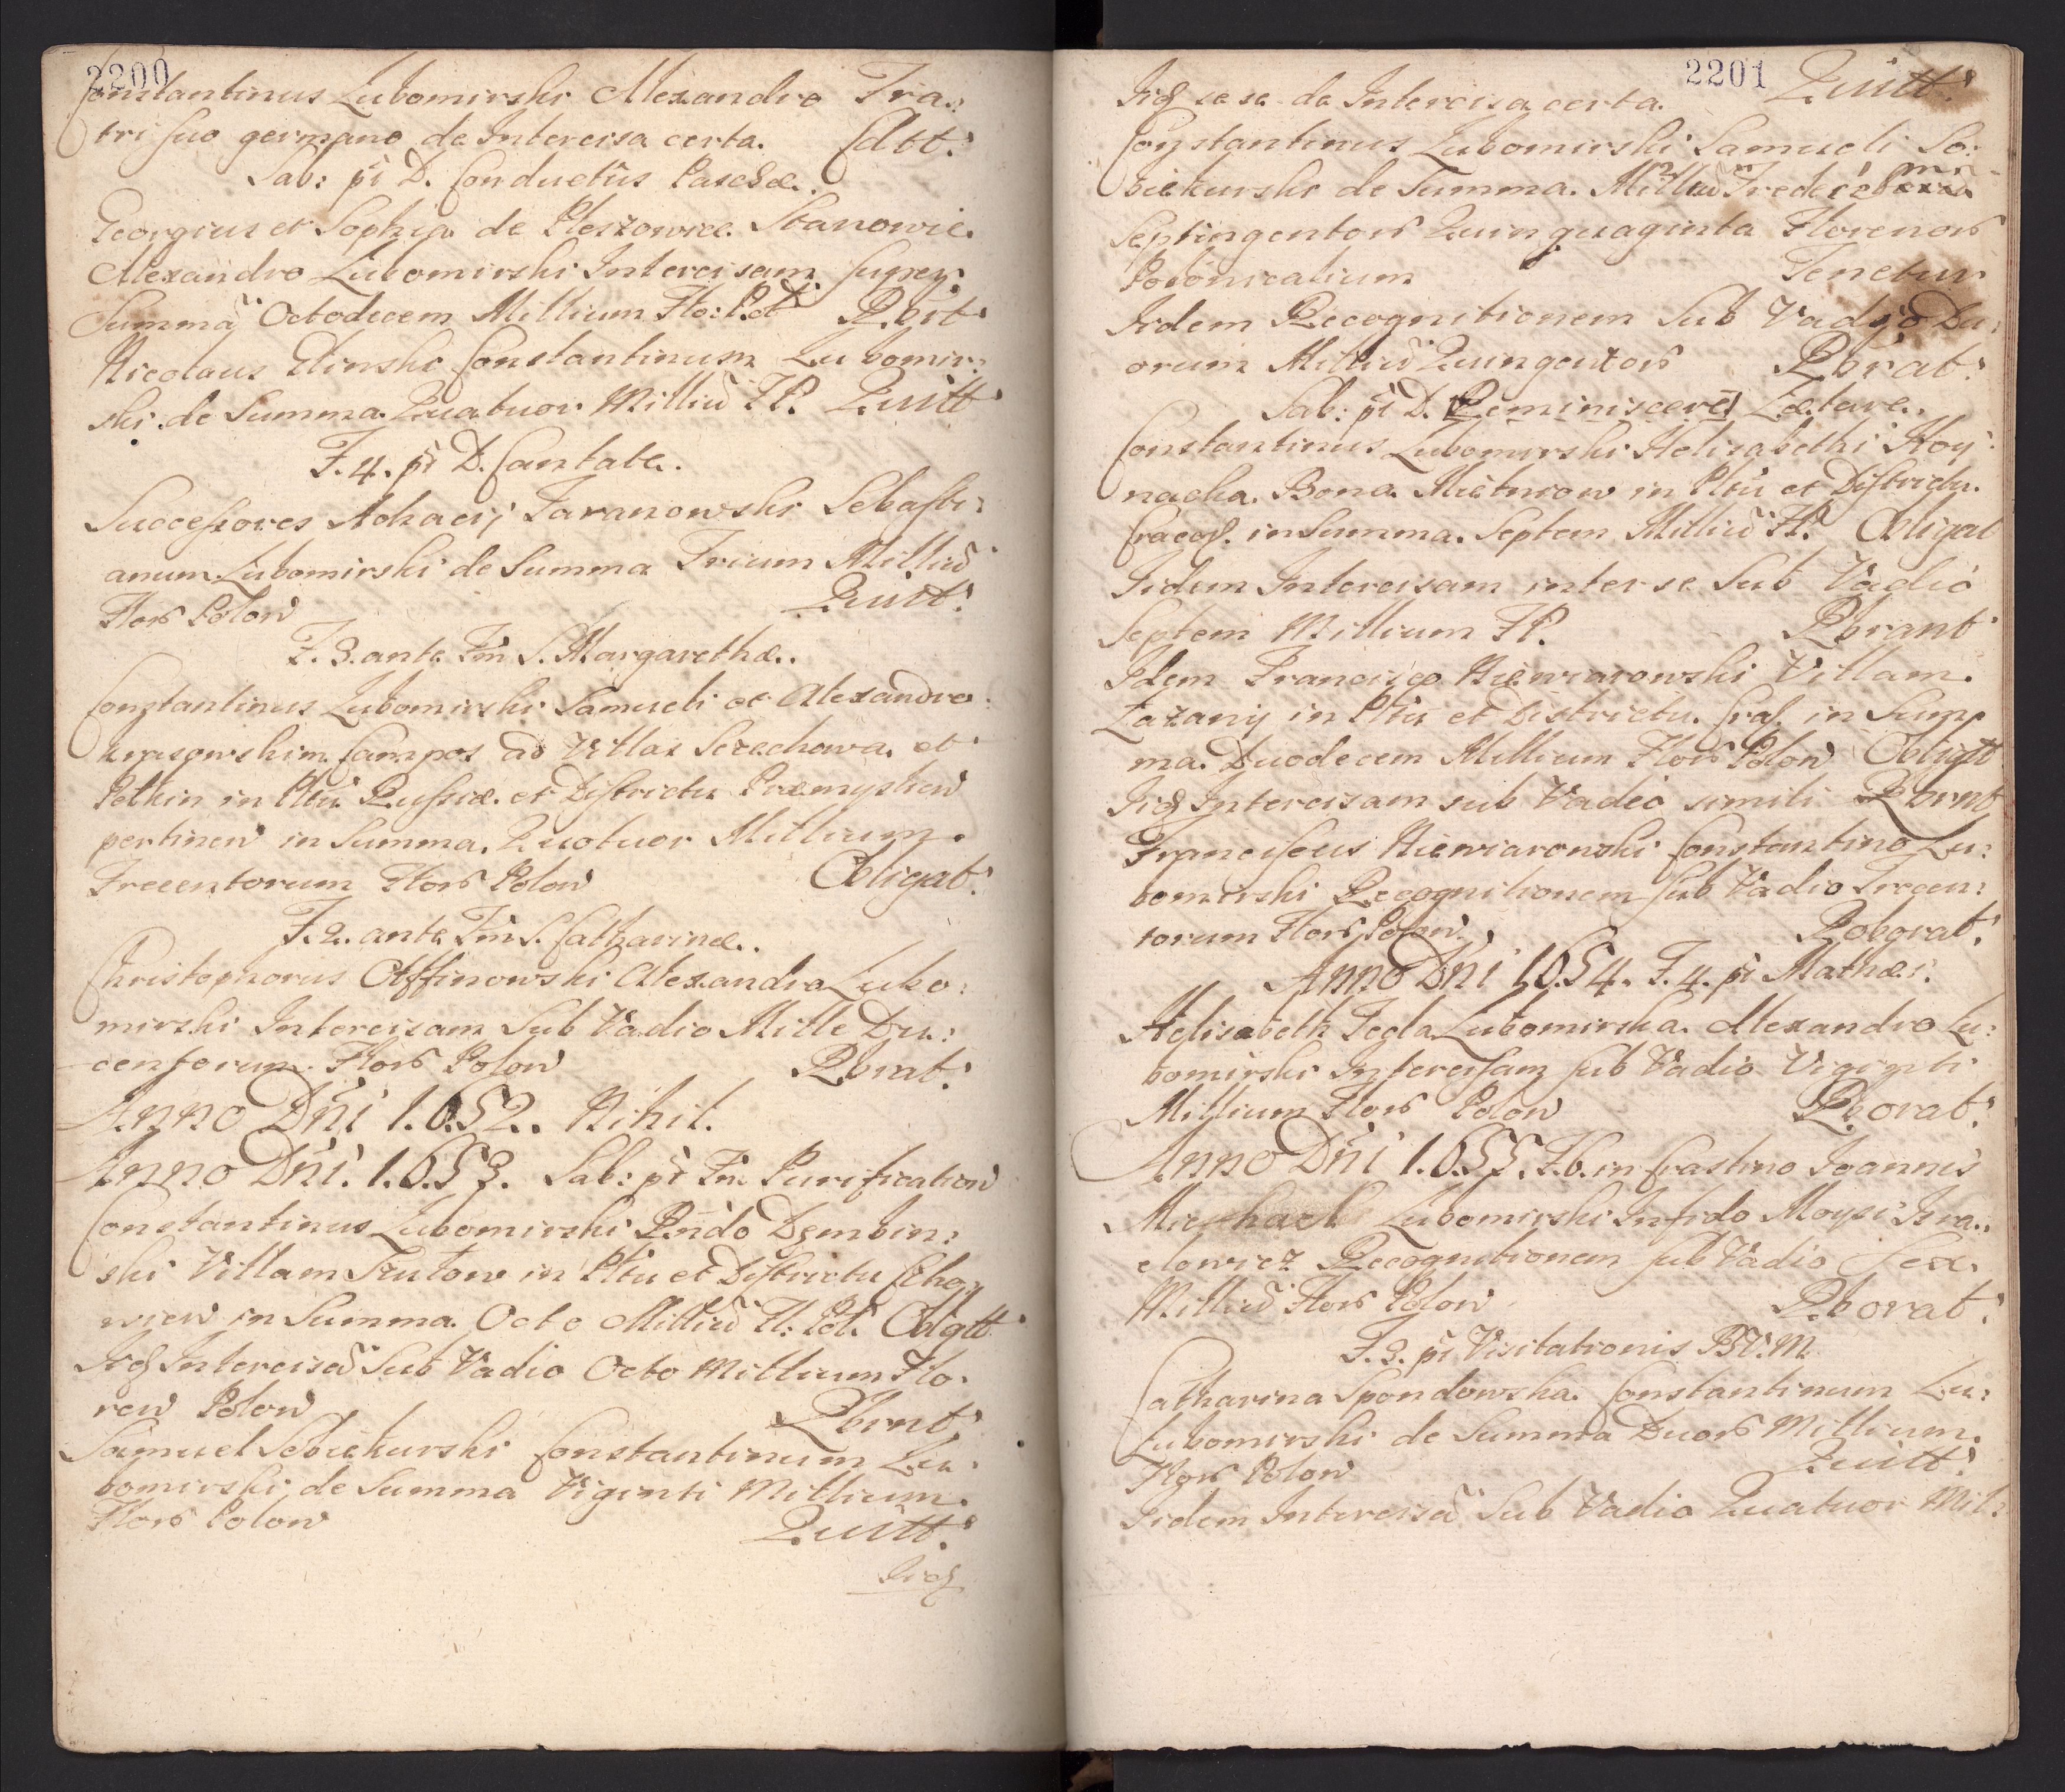 2200
Constantinus Lubomirski Alexandro Fra:
tri suo germano de Intercisa certa. Cdtt:
Sab: pt D. Conductûs Paschæ.
Georgius et Sophia de Pleszowice Stanowie.
Alexandro Lubomirski Intercisam super
Summã Octodecem Millium Flo: Pol: Rbrt
Nicolaus Glinski Constantinum Lubomir:
ski de Summa Quatuor Milliũ FP. Quitt
F. 4. pt D. Cantate.
Successores Achacij Taranowski Sebasti:
anum Lubomirski de Summa Trium Milliũ
Flor Polon Quitt:
F. 3. ante Fm S. Margarethæ.
Constantinus Lubomirski Samueli et Alexandro
Campos ad Villas Szechowa et
Pelkin in Pltu Russiæ et Districtu Præmyslien
pertinen in Summa Quotuor Millium
Trecentorum Flor Polon Obligat:
F. 2. ante Fm S. Catharinæ.
Christophorus Offinowski Alexandro Lubo:
mirski Intercisam Sub Vadio Mille Du:
centorum Flor Polon Rbrat:
Anno Dñi 1652. Nihil.
Anno Dñi. 1653. Sab: pt Fm Purification
Constantinus Lubomirski Rñdo Dembin:
ski Villam Trutow in Pltu et Districtu Chen
wien in Summa Octo Milliũ Fl: Pol: Oblgtt
Iid Intercisã Sub Vadio Octo Millium Flo.
ren Polon Rbrnt:
Samuel Sobiekurski Constantinum Lu:
bomirski de Summa Viginti Millium.
Flor Polon Quitt:
Iid
2201
Iid se se de Intercisa certa. Quitt:
Constantinus Lubomirski Samueli So:
biekurski de Summa Milliũ Tredecem
Septingentor Quinquaginta Florenor
Polonicalium Tenetur
Iidem Recognitionem Sub Vadio Du:
orum Milliũ Quingentor Rbrat:
Sab: pt D. Reminiscere Lætare.
Constantinus Lubomirski Helisabethi Hoy
nacka Bona Mietniow in Pltu et Districtu.
Cracov. in Summa. Septem Milliũ Fl. Obligat
Iidem Intercisam inter se Sub Vadio
Septem Millium FP. Rbrant
Idem Francisco Niewiarowski Villam.
Zazany in Pltu et Districtu. Crac. in Sum
ma. Duodecem Millium Flor Polon Obligtt
Iid Intercisam sub Vadio simili Rbrnt
Franciscus Niewiarowski Constantino Lu:
bomirski Recognitionem sub Vadio Trecen:
torum Flor Polon Roborat:
Anno Dñi 1654. F. 4. pt Mathæi.
Helisabeth Tegla Lubomirska Alexandro Lu:
bomirski Intercisam sub Vadio Viginti
Millium Flor Polon Rborat:
Anno Dñi 1655. F. 6. in Crastino Joannis
Michael Lubomirski Infido Moysi Isra.
elowicz Recognitionem sub Vadio Sex.
Milliũ Flor Polon Rborat:
F. 3. pt Visitationis B.V.M.
Catharina Spondowska Constantinum Lu:
Lubomirski de Summa Duor Millium.
Flor Polon Quitt:
Iidem Intercisã Sub Vadio Quatuor Mil: